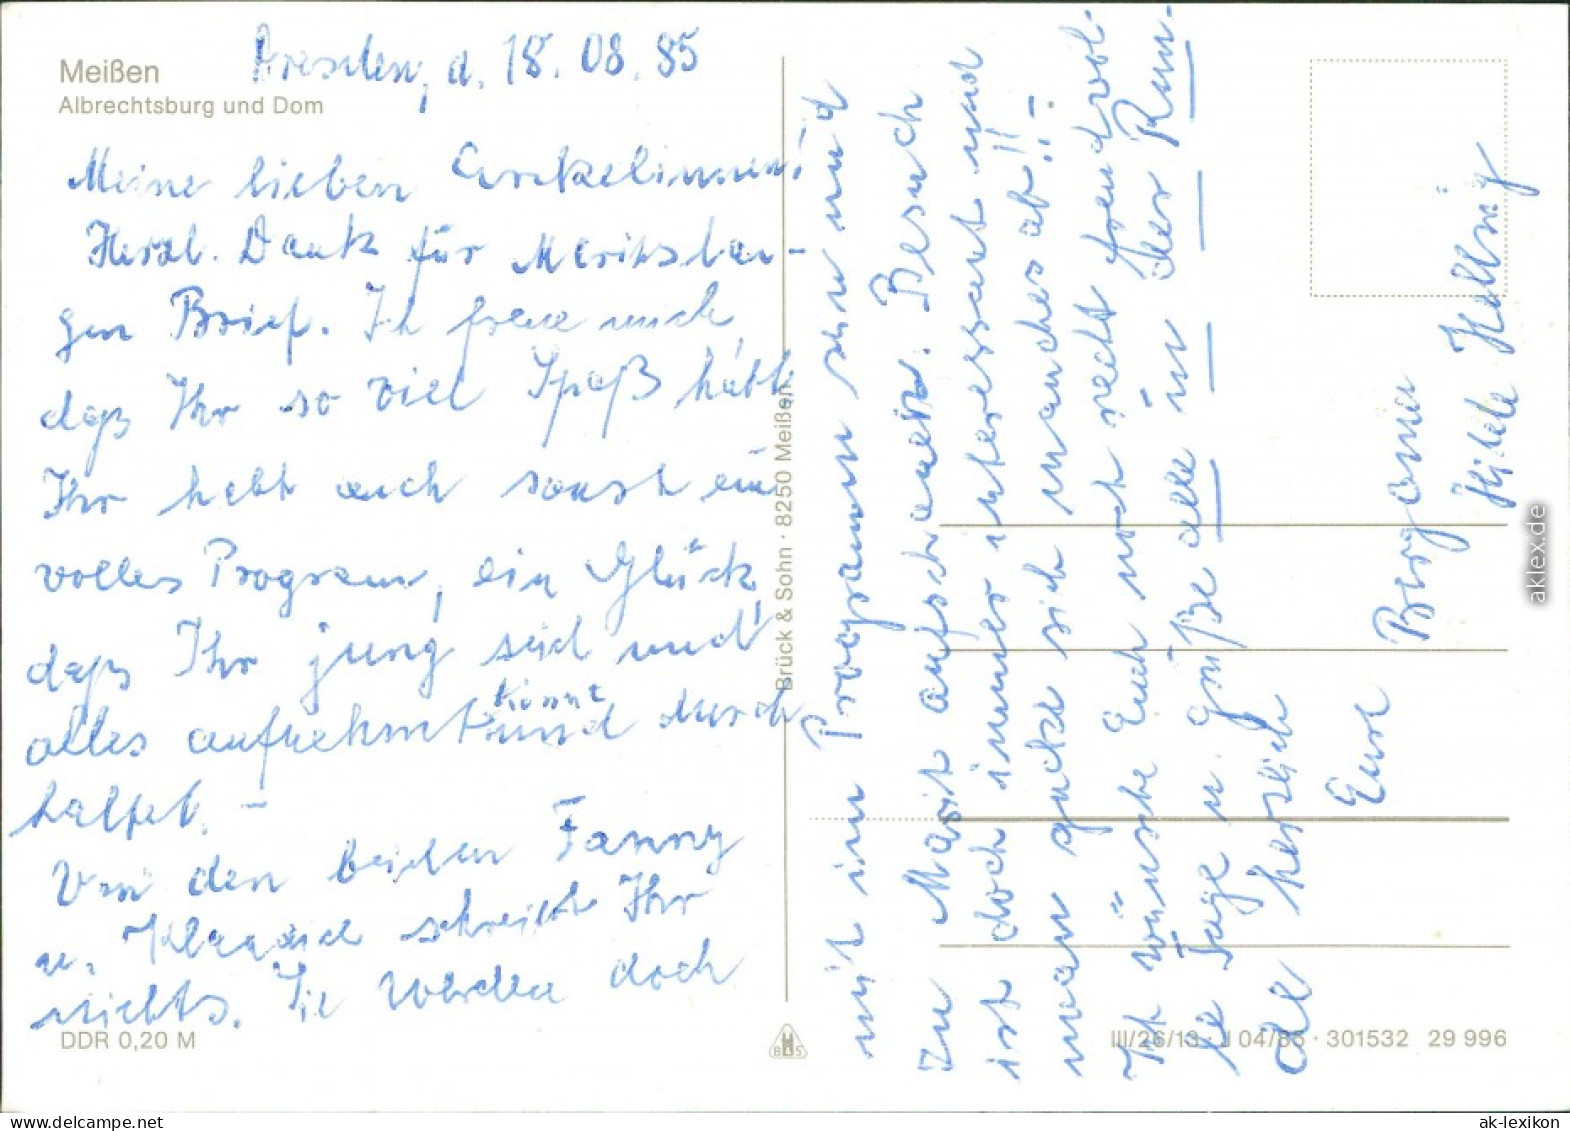 Meißen
Albrechtsburg und Dom
Dresden, d. 18. 08. 85
Meine lieben Enkelinnen!
Herzl. Dank für Marits lan-
gen Brief. Ich freue mich
daß Ihr so viel Spaß habt.
Ihr habt auch sonst ein
volles Program, ein Glück,
daß Ihr jung seid und
alles aufnehmt könnt und durch
haltet. –
Von den beiden Fanny
u. schreibt Ihr
nichts. Sie werden doch
mit im Programm sein und
zu Marit aufschauen. Besuch
ist doch immer interessant und
man guckt sich manches ab!! –
Ich wünsche Euch noch recht freudvol-
le Tage u. grüße alle in der Run-
de herzlich
Eure
Bergomer
Hilde Hellwig
Brück & Sohn · 8250 Meißen
DDR 0,20 M
BS
III/26/13 · J 04/85 · 301532 29 996
aklex.de
ak-lexikon